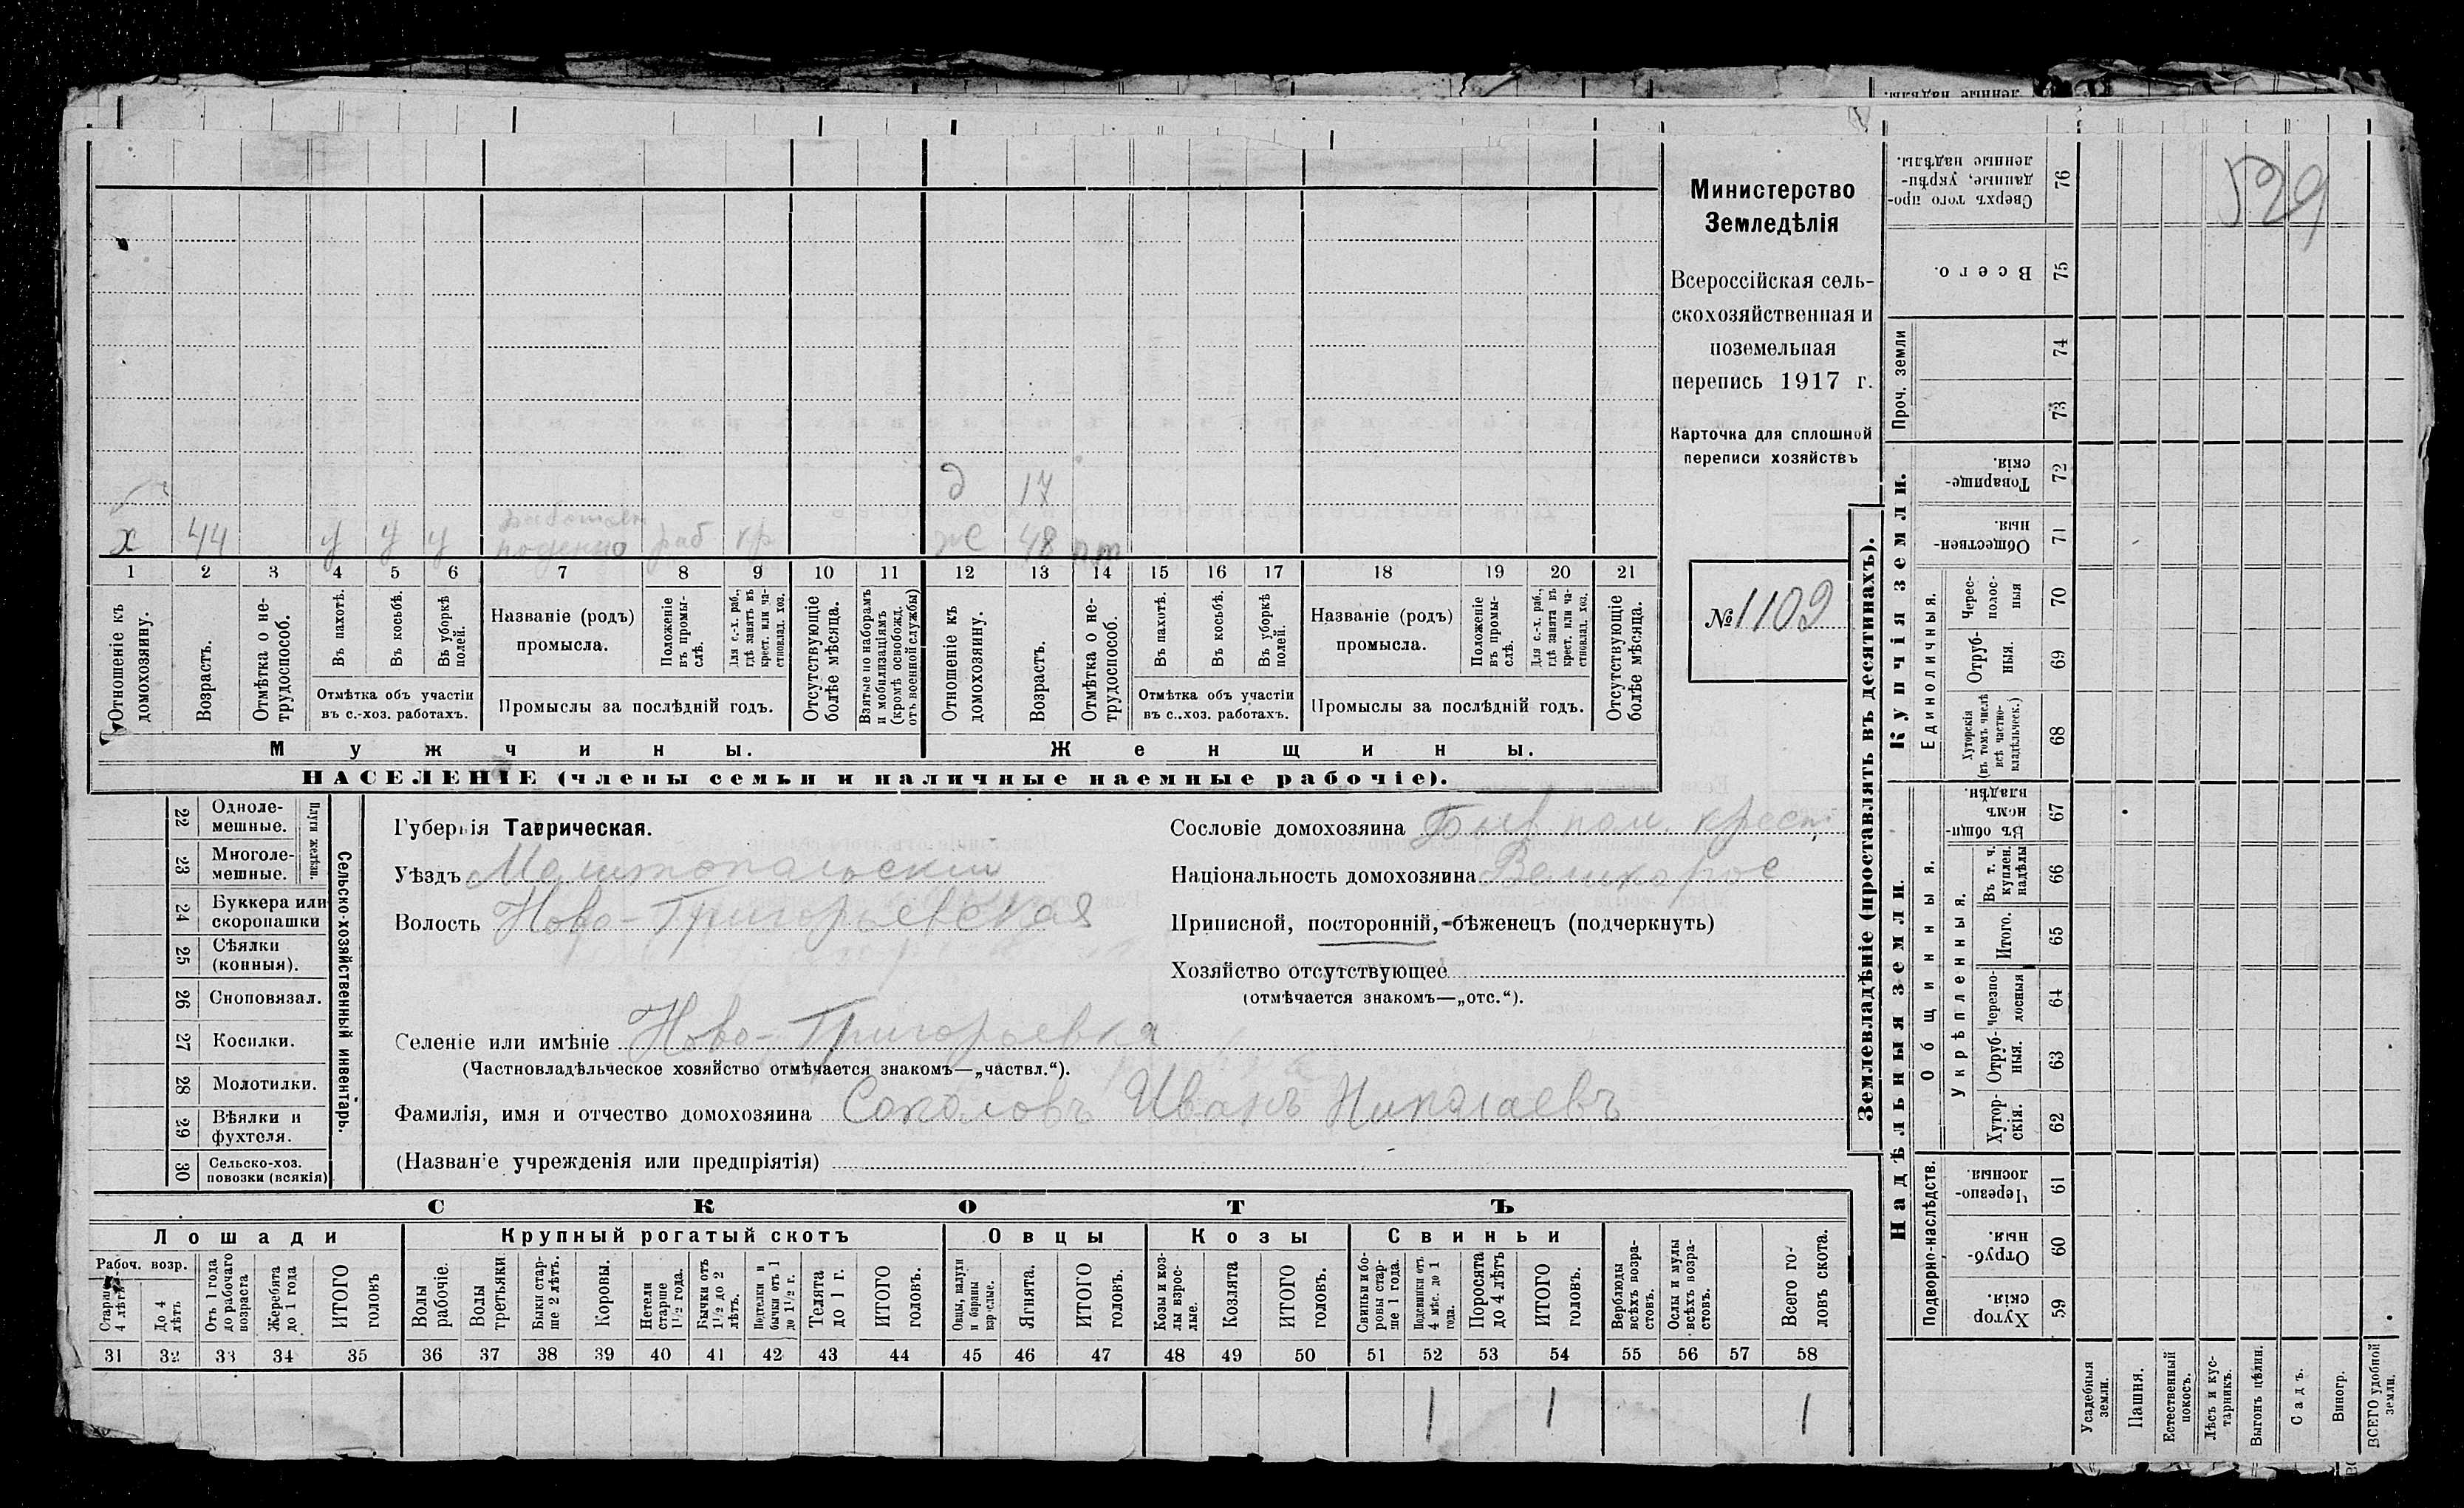 529
Министерство
Земледѣлія
Всероссійская сель-
скохозяйственная и
поземельная
перепись 1917 г.
Карточка для сплошной
переписи хозяйствъ
№ 1102
д 17
работает
х 44 у у у поденно раб кр ж 48 пт
1 2 3 4 5 6 7 8 9 10 11 12 13 14 15 16 17 18 19 20 21
Отношеніе къ домохозяину.
Возрастъ.
Отмѣтка о не-трудоспособ.
Въ пахотѣ.
Въ косьбѣ.
Въ уборкѣ полей.
Отмѣтка объ участіи
въ с.-хоз. работахъ.
Названіе (родъ)
промысла.
Положеніе въ промы-слѣ.
Для с.-х. раб., гдѣ занятъ въ крест. или ча-стновлад. хоз.
Промыслы за послѣдній годъ.
Отсутствующіе болѣе мѣсяца.
Взятые по наборамъ и мобилизаціямъ (кромѣ освобожд. отъ военной службы)
Отношеніе къ домохозяину.
Возрастъ.
Отмѣтка о не-трудоспособ.
Въ пахотѣ.
Въ косьбѣ.
Въ уборкѣ полей.
Отмѣтка объ участіи
въ с..хоз. работахъ.
Названіе (родъ)
промысла.
Положеніе въ промы-слѣ.
Для с.-х. раб., гдѣ занята въ крест. или ча-стновлад. хоз.
Промыслы за послѣдній годъ.
Отсутствующіе болѣе мѣсяца.
Мужчины.
Женщины.
НАСЕЛЕНІЕ (члены семьи и наличные наемные рабочіе).
Сельско-хозяйственный инвентарь.
Плуги желѣзн.
22 Одноле-
мешные.
23 Многоле-
мешные.
24 Буккера или
скоропашки
25 Сѣялки
(конныя).
26 Сноповязал.
27 Косилки.
28 Молотилки.
29 Вѣялки и
фухтеля.
30 Сельско-хоз.
повозки (всякія)
Губернія Таврическая.
Уѣздъ Мелитопольский
Волость Ново-Григорьевская
Селеніе или имѣніе Ново-Григорьевка
(Частновладѣльческое хозяйство отмѣчается знакомъ—„частвл.“).
Фамилія, имя и отчество домохозяина Соколовъ Иванъ Николаевъ
(Названіе учрежденія или предпріятія)
Сословіе домохозяина Быв пом. крест
Національность домохозяина Великорос
Приписной, посторонній, бѣженецъ (подчеркнуть)
Хозяйство отсутствующее
(отмѣчается знакомъ—„отс.“).
СКОТЪ
Лошади
Крупный рогатый скотъ
Овцы
Козы
Свиньи
Рабоч. возр.
Старше 4 лѣтъ
До 4 лѣтъ
Отъ 1 года до рабочаго возраста
Жеребята до 1 года
ИТОГО головъ
Волы рабочіе.
Волы третьяки
Быки стар-ше 2 лѣтъ.
Коровы.
Нетели старше 1½ года.
Бычки отъ 1½ до 2 лѣтъ.
Подтелки и бычки отъ 1 до 1½ г.
Телята до 1 г.
ИТОГО головъ.
Овцы, валухи и бараны взрослые.
Ягнята.
ИТОГО головъ.
Козы и коз-лы взрос-лые.
Козлята
ИТОГО головъ.
Свиньи и бо-ровы стар-ше 1 года.
Подсвинки отъ 4 мѣс. до 1 года.
Поросята до 4 лѣтъ
ИТОГО головъ.
Верблюды всѣхъ возра-стовъ.
Ослы и мулы всѣхъ возра-стовъ.
Всего го-ловъ скота.
31 32 33 34 35 36 37 38 39 40 41 42 43 44 45 46 47 48 49 50 51 52 53 54 55 56 57 58
1 1 1
Землевладѣніе (проставлять въ десятинахъ).
Надѣльныя земли.
Купчія земли.
Проч. земли
Подворно-наслѣдств.
Общинныя.
Укрѣпленныя.
Единоличныя.
76 Сверхъ того про-
данные, укрѣп-
ленные надѣлы.
75 Всего.
74
73
72 Товарище-
скія.
71 Обществен-
ныя.
70 Черес-
полос-
ныя
69 Отруб-
ныя.
68 Хуторскія
(въ томъ числѣ
всѣ частно-
владѣльческ.)
67 Въ общи-
номъ
владѣн.
66 Въ т. ч.
куплен.
надѣлы
65 Итого.
64 Черезпо-
лосныя
63 Отруб-
ныя.
62 Хутор-
скія.
61 Черезпо-
лосныя.
60 Отруб-
ныя.
59 Хутор
скія.
Усадебныя земли.
Пашня.
Естественный покосъ.
Лѣсъ и кус-тарникъ.
Выгонъ цѣлин.
Садъ.
Виногр.
ВСЕГО удобной земли.